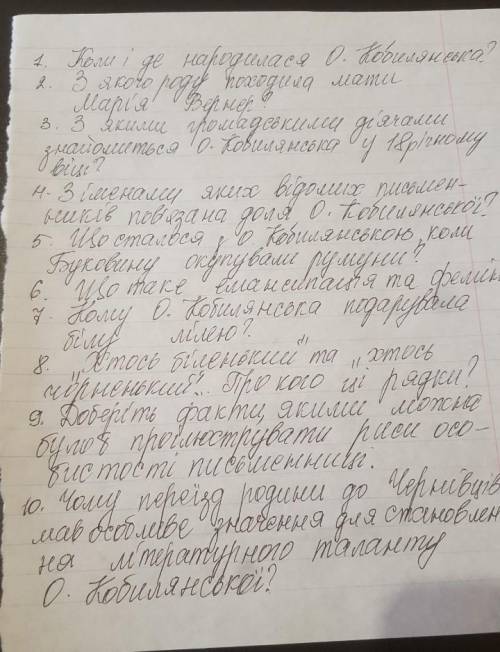 1. Коли і де народилася О. Кобилянська?
2. З якого роду походила мати
Марія Вернер?
3. З якими громадськими діячами
знайомиться О. Кобилянська у 18річному
віці?
4. З іменами яких відомих письмен-
ників пов'язана доля О. Кобилянської?
5. Що сталося з О. Кобилянською, коли
Буковину окупували румуни?
6. Що таке емансипація та фемін
7. Кому О. Кобилянська подарувала
білу лілею?
8. "Хтось біленький" та "хтось
чорненький". Про кого ці рядки?
9. Доберіть факти, якими можна
було б проілюструвати риси осо-
бистості письменниці.
10. Чому переїзд родини до Чернівців
мав особливе значення для становлен
ня літературного таланту
О. Кобилянської?